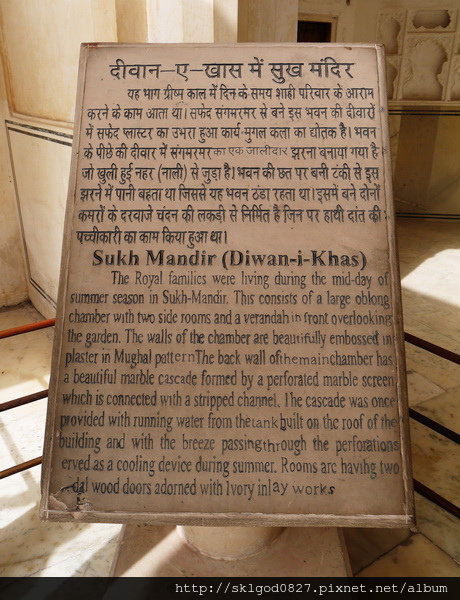 दीवान–ए–खास में सुख मंदिर
यह भाग ग्रीष्म काल में दिन के समय शाही परिवार के आराम
करने के काम आता था। सफेद संगमरमर से बने इस भवन की दीवारों
में सफेद प्लास्टर का उभरा हुआ कार्य मुगल कला का द्योतक है। भवन
के पीछे की दीवार में संगमरमर का एक जालीदार झरना बनाया गया है
जो खुली हुई नहर (नाली) से जुड़ा है। भवन की छत पर बनी टंकी से इस
झरने में पानी बहता था जिससे यह भवन ठंडा रहता था। इसमें बने दोनों
कमरों के दरवाजे चंदन की लकड़ी से निर्मित है जिन पर हाथी दांत की
पच्चीकारी का काम किया हुआ था।
Sukh Mandir (Diwan-i-Khas)
The Royal families were living during the mid-day of
summer season in Sukh-Mandir. This consists of a large oblong
chamber with two side rooms and a verandah in front overlooking
the garden. The walls of the chamber are beautifully embossed in
plaster in Mughal pattern The back wall of the main chamber has
a beautiful marble cascade formed by a perforated marble screen
which is connected with a stripped channel. The cascade was once
provided with running water from the tank built on the roof of the
building and with the breeze passing through the perforations
erved as a cooling device during summer. Rooms are having two
dal wood doors adorned with Ivory inlay works
http://sklgod0827.pixnet.net/album